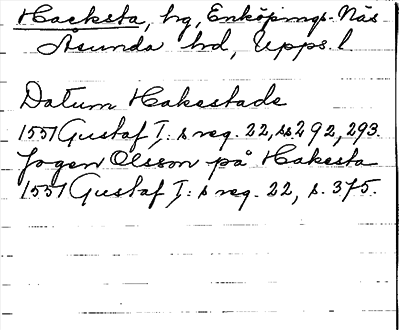 Hacksta, by, Enköpings-Näs
Åsunda hd, Upps. l.
Datum Hakestade
1551 Gustaf I: s reg. 22, ss 292, 293.
Jogen Olsson på Hakesta
1551 Gustaf I: s reg. 22, s. 375.